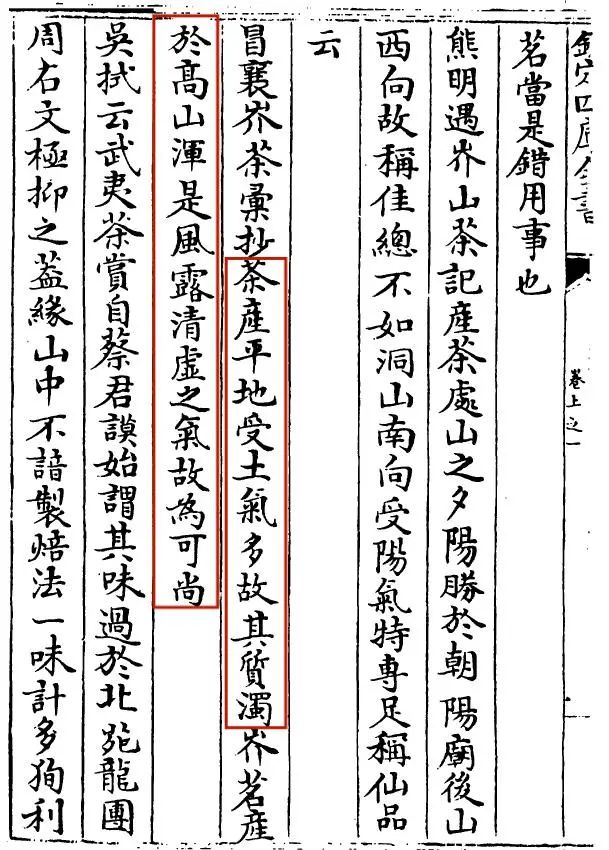 欽定四庫全書
卷上之一
茗當是錯用事也
熊明遇岕山茶記産茶處山之夕陽勝於朝陽廟後山
西向故稱佳總不如洞山南向受陽氣特專足稱仙品
云
冒襄岕茶彚抄茶産平地受土氣多故其質濁岕茗産
於髙山渾是風露清虛之氣故為可尚
吳拭云武夷茶賞自蔡君謨始謂其味過於北苑龍團
周右文極抑之葢緣山中不諳製焙法一味計多狥利